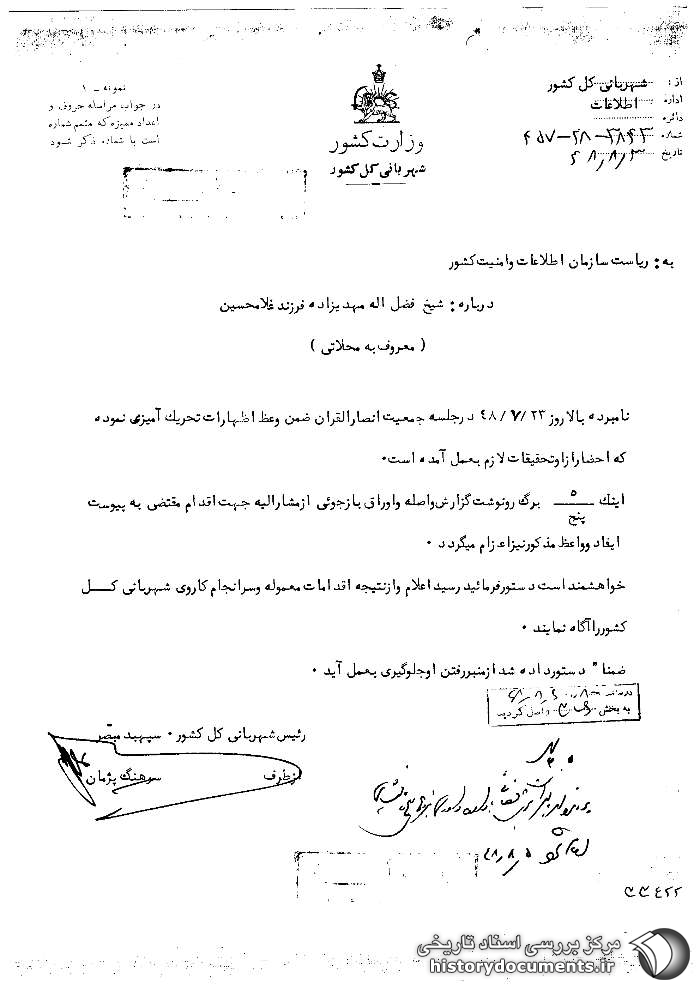 از : شهربانی کل کشور
اداره اطلاعات
دائره
شماره ۲۸۴۳-۲۸-۴۵۷
تاریخ
وزارت کشور
شهربانی کل کشور
نمونه - ۱
در جواب مراسله حروف و
اعداد ممیزه که متمم شماره
است با شماره ذکر شود
به : ریاست سازمان اطلاعات وامنیت کشور
درباره : شیخ فضل اله مهدیزاده فرزند غلامحسین
( معروف به محلاتی )
نامبرده بالا روز ۲۳ /۷ /۴۸ درجلسه جمعیت انصارالقران ضمن وعظ اظهارات تحریک آمیزی نموده
که احضار ازاوتحقیقات لازم بعمل آمده است .
اینک ۵ برگ رونوشت گزارش واصله واوراق بازجوئی ازمشارالیه جهت اقدام مقتضی به پیوست
پنج
ایفاد وواعظ مذکورنیزاعزام میگردد .
خواهشمند است دستورفرمائید رسید اعلام وازنتیجه اقدامات معموله وسرانجام کاروی شهربانی کل
کشورراآگاه نمایند .
ضمنا" دستورداده شد ازمنبررفتن اوجلوگیری بعمل آید .
به بخش واصل گردید
رئیس شهربانی کل کشور . سپهبد مبصر
ازطرف سرهنگ پژمان
۴۸٫۸٫۵
۳۳۴۲۲
مرکز بررسی اسناد تاریخی
historydocuments.ir